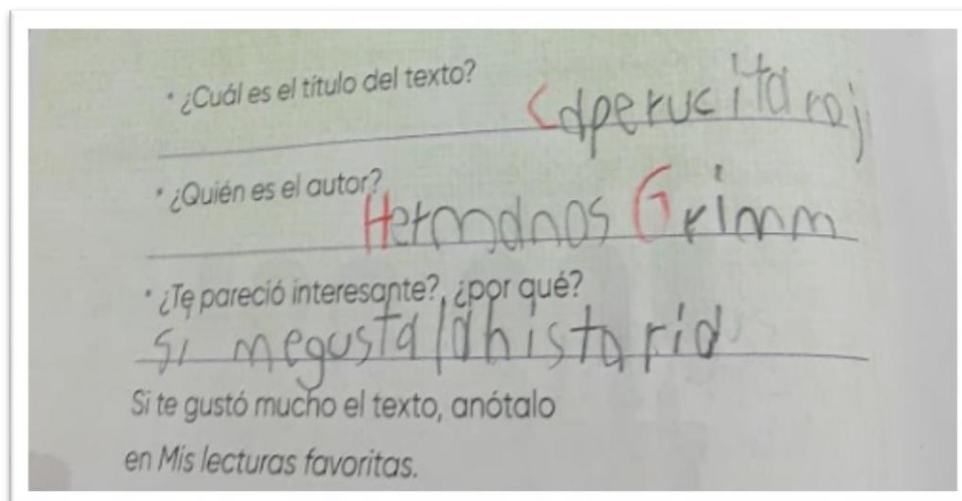 * ¿Cuál es el título del texto?
Caperucita roj
* ¿Quién es el autor?
Hermanos Grimm
* ¿Te pareció interesante?, ¿por qué?
Si megusta la historia
Si te gustó mucho el texto, anótalo
en Mis lecturas favoritas.